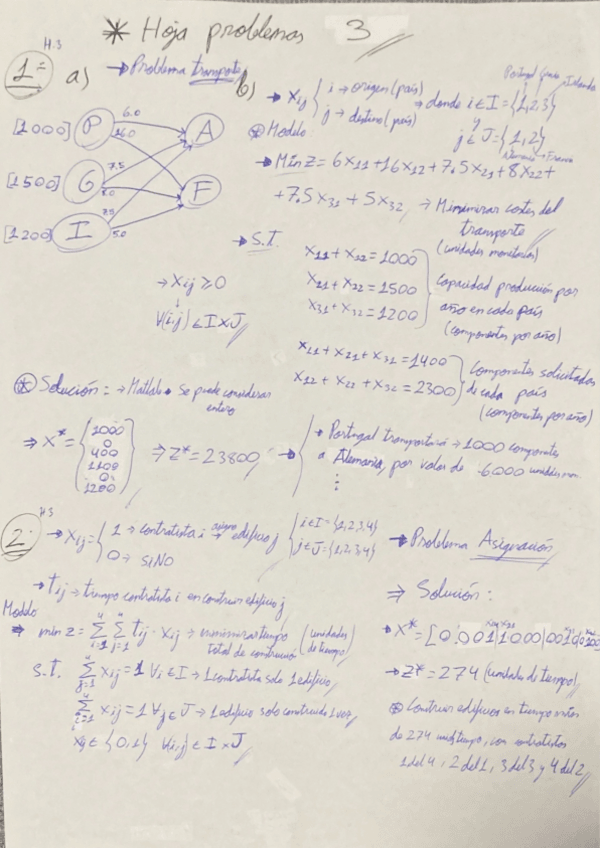 * Hoja problemas 3
H.3
1= a) → Problema transporte
[1000] P 6.0 A
16.0
[1500] G 7.5 F
8.0
[1200] I 7.5
5.0
→ Xij ≥ 0
∀(i,j) ∈ I x J
b) → Xij { i → origen (país)
j → destino (país)
→ donde i ∈ I = {1,2,3}
Portugal Irlanda
y
j ∈ J = {1,2}
⊛ Modelo
→ Min Z = 6X11 + 16X12 + 7.5X21 + 8X22 +
+ 7.5X31 + 5X32 → Minimizar costes del
transporte
(unidades monetarias)
→ S.T.
X11 + X12 = 1000
X21 + X22 = 1500
X31 + X32 = 1200
Capacidad producción por
año en cada país
(componentes por año)
X11 + X21 + X31 = 1400
X12 + X22 + X32 = 2300
Componentes solicitados
de cada país
(componentes por año)
⊛ Solución: → Matlab • Se puede considerar
entero
⇒ X* = { 1000
0
400
1100
0
1200 }
⇒ Z* = 23800 →
→ Portugal transportará → 1000 componentes
a Alemania, por valor de 6000
⋮
H3
2= → Xij = { 1 → contratista i asigno → edificio j
0 → SINO
{ i ∈ I = {1,2,3,4}
j ∈ J = {1,2,3,4}
→ Problema Asignación
→ tij → tiempo contratista i en construir edificio j
Modelo
⇒ min z = Σ Σ tij · xij → minimizar tiempo
total de construcción (unidades
de tiempo)
S.T. Σ xij = 1 ∀i ∈ I → 1 contratista solo 1 edificio
Σ xij = 1 ∀j ∈ J → 1 edificio solo construido 1 vez
xij ∈ {0,1} ∀i,j ∈ I x J
⇒ Solución:
→ X* = [0001|1000|0010|0100]
→ Z* = 274 (unidades de tiempo)
⊛ Construir edificios en tiempo
de 274 und tiempo, con contratistas
1 del 4, 2 del 1, 3 del 3 y 4 del 2